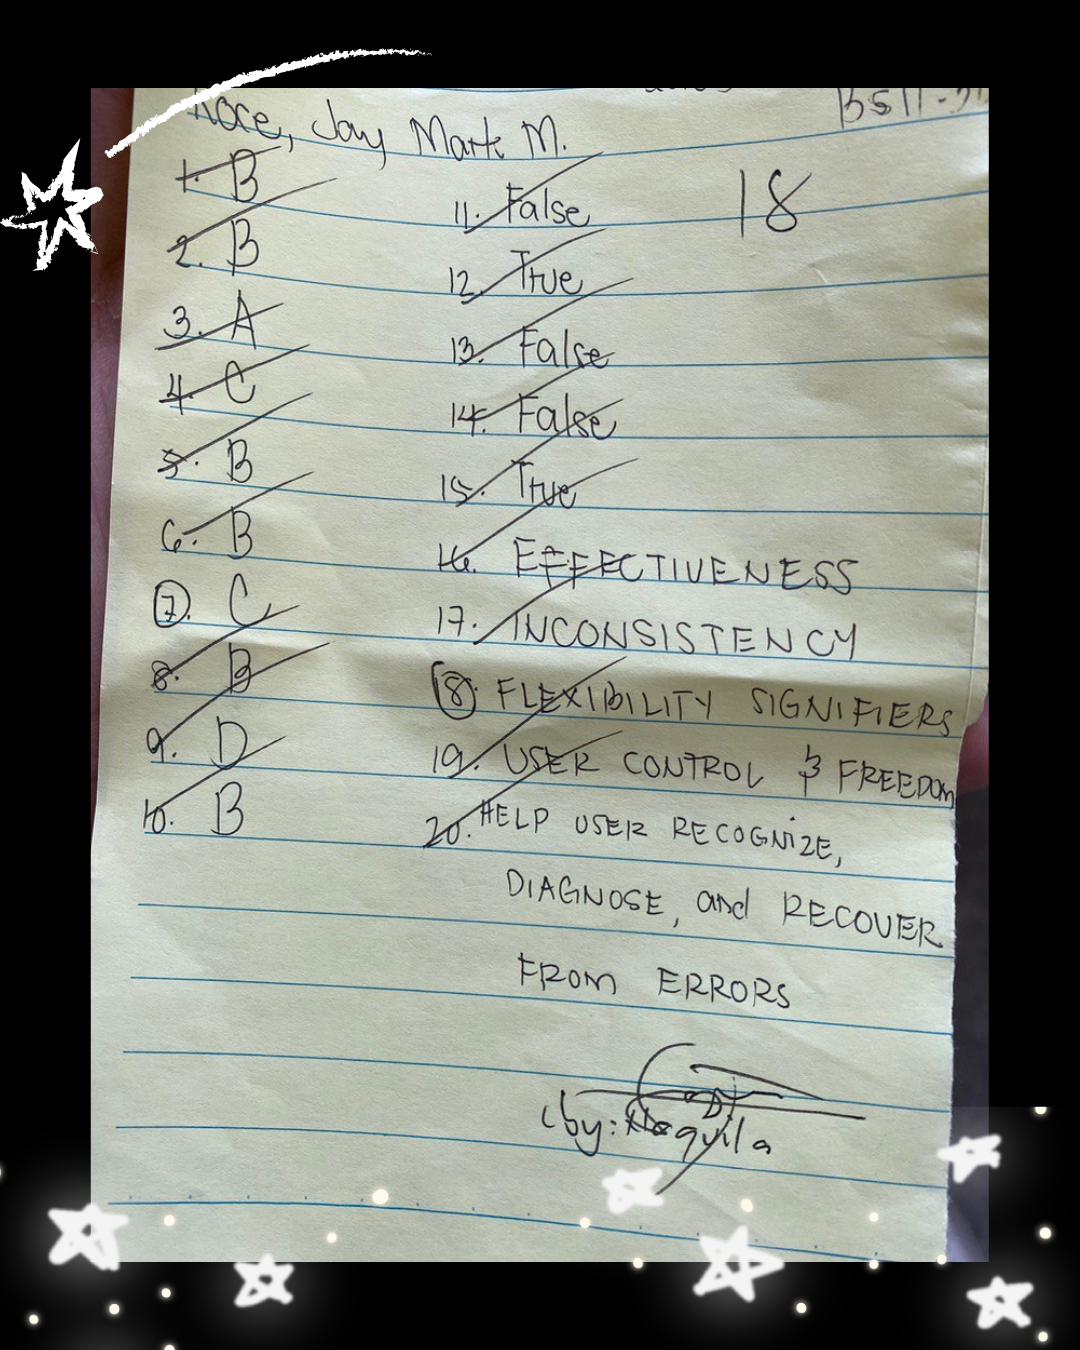 Roce, Jay Mark M.
18
1. B
2. B
3. A
4. C
5. B
6. B
7. C
8. B
9. D
10. B
11. False
12. True
13. False
14. False
15. True
16. EFFECTIVENESS
17. INCONSISTENCY
18. FLEXIBILITY SIGNIFIERS
19. USER CONTROL & FREEDOM
20. HELP USER RECOGNIZE,
DIAGNOSE, and RECOVER
FROM ERRORS
cby: